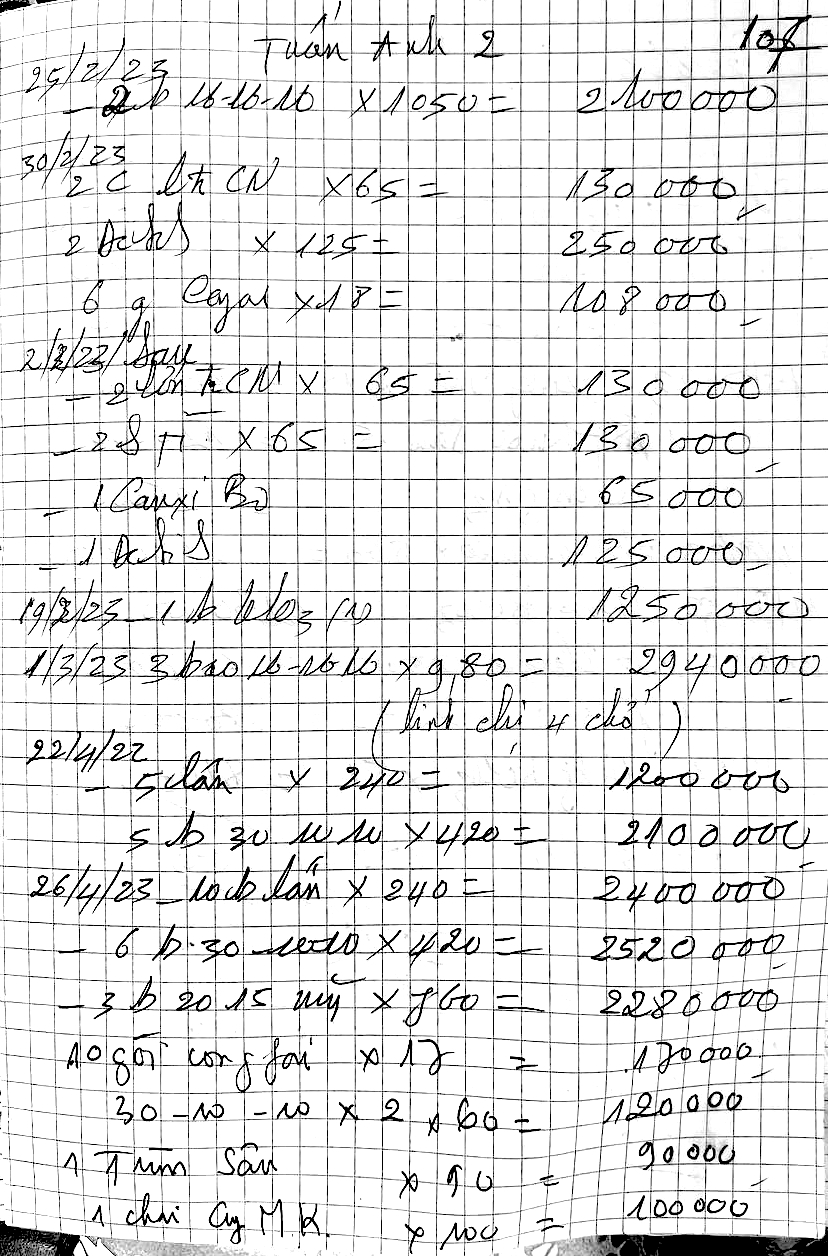 Tuấn Anh 2 107
25/2/23
- 2b 16-16-16 x 1050 = 2100 000
30/2/23
2 C CN x 65 = 130 000
2 x 125 = 250 000
6 g x 18 = 108 000
2/2/23/ Sau
- 2 CN x 65 = 130 000
- 2 x 65 = 130 000
- 1 Canxi Bo 65 000
- 1 125 000
19/2/23 - 1 b 1250 000
1/3/23 3 bao 16-16 16 x 9,80 = 2940 000
(linh chị 4 chở)
22/4/22
- 5 lân x 240 = 1200 000
5 b 30 10 10 x 420 = 2100 000
26/4/23 - 10 b lân x 240 = 2400 000
- 6 b. 30 - 10 10 x 420 = 2520 000
- 3 b 20 15 mỹ x 760 = 2280 000
10 gói x 17 = 170 000
30 - 10 - 10 x 2 x 60 = 120 000
1 Trùm Sâu x 90 = 90 000
1 chai M K. x 100 = 100 000